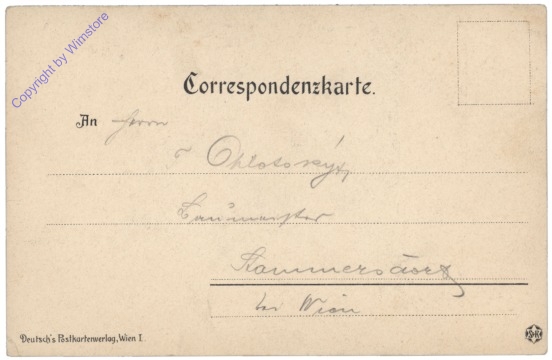 Copyright by Wimstore
Correspondenzkarte.
An Herrn
Baumeister
Stammersdorf
bei Wien
Deutsch's Postkartenverlag, Wien I.